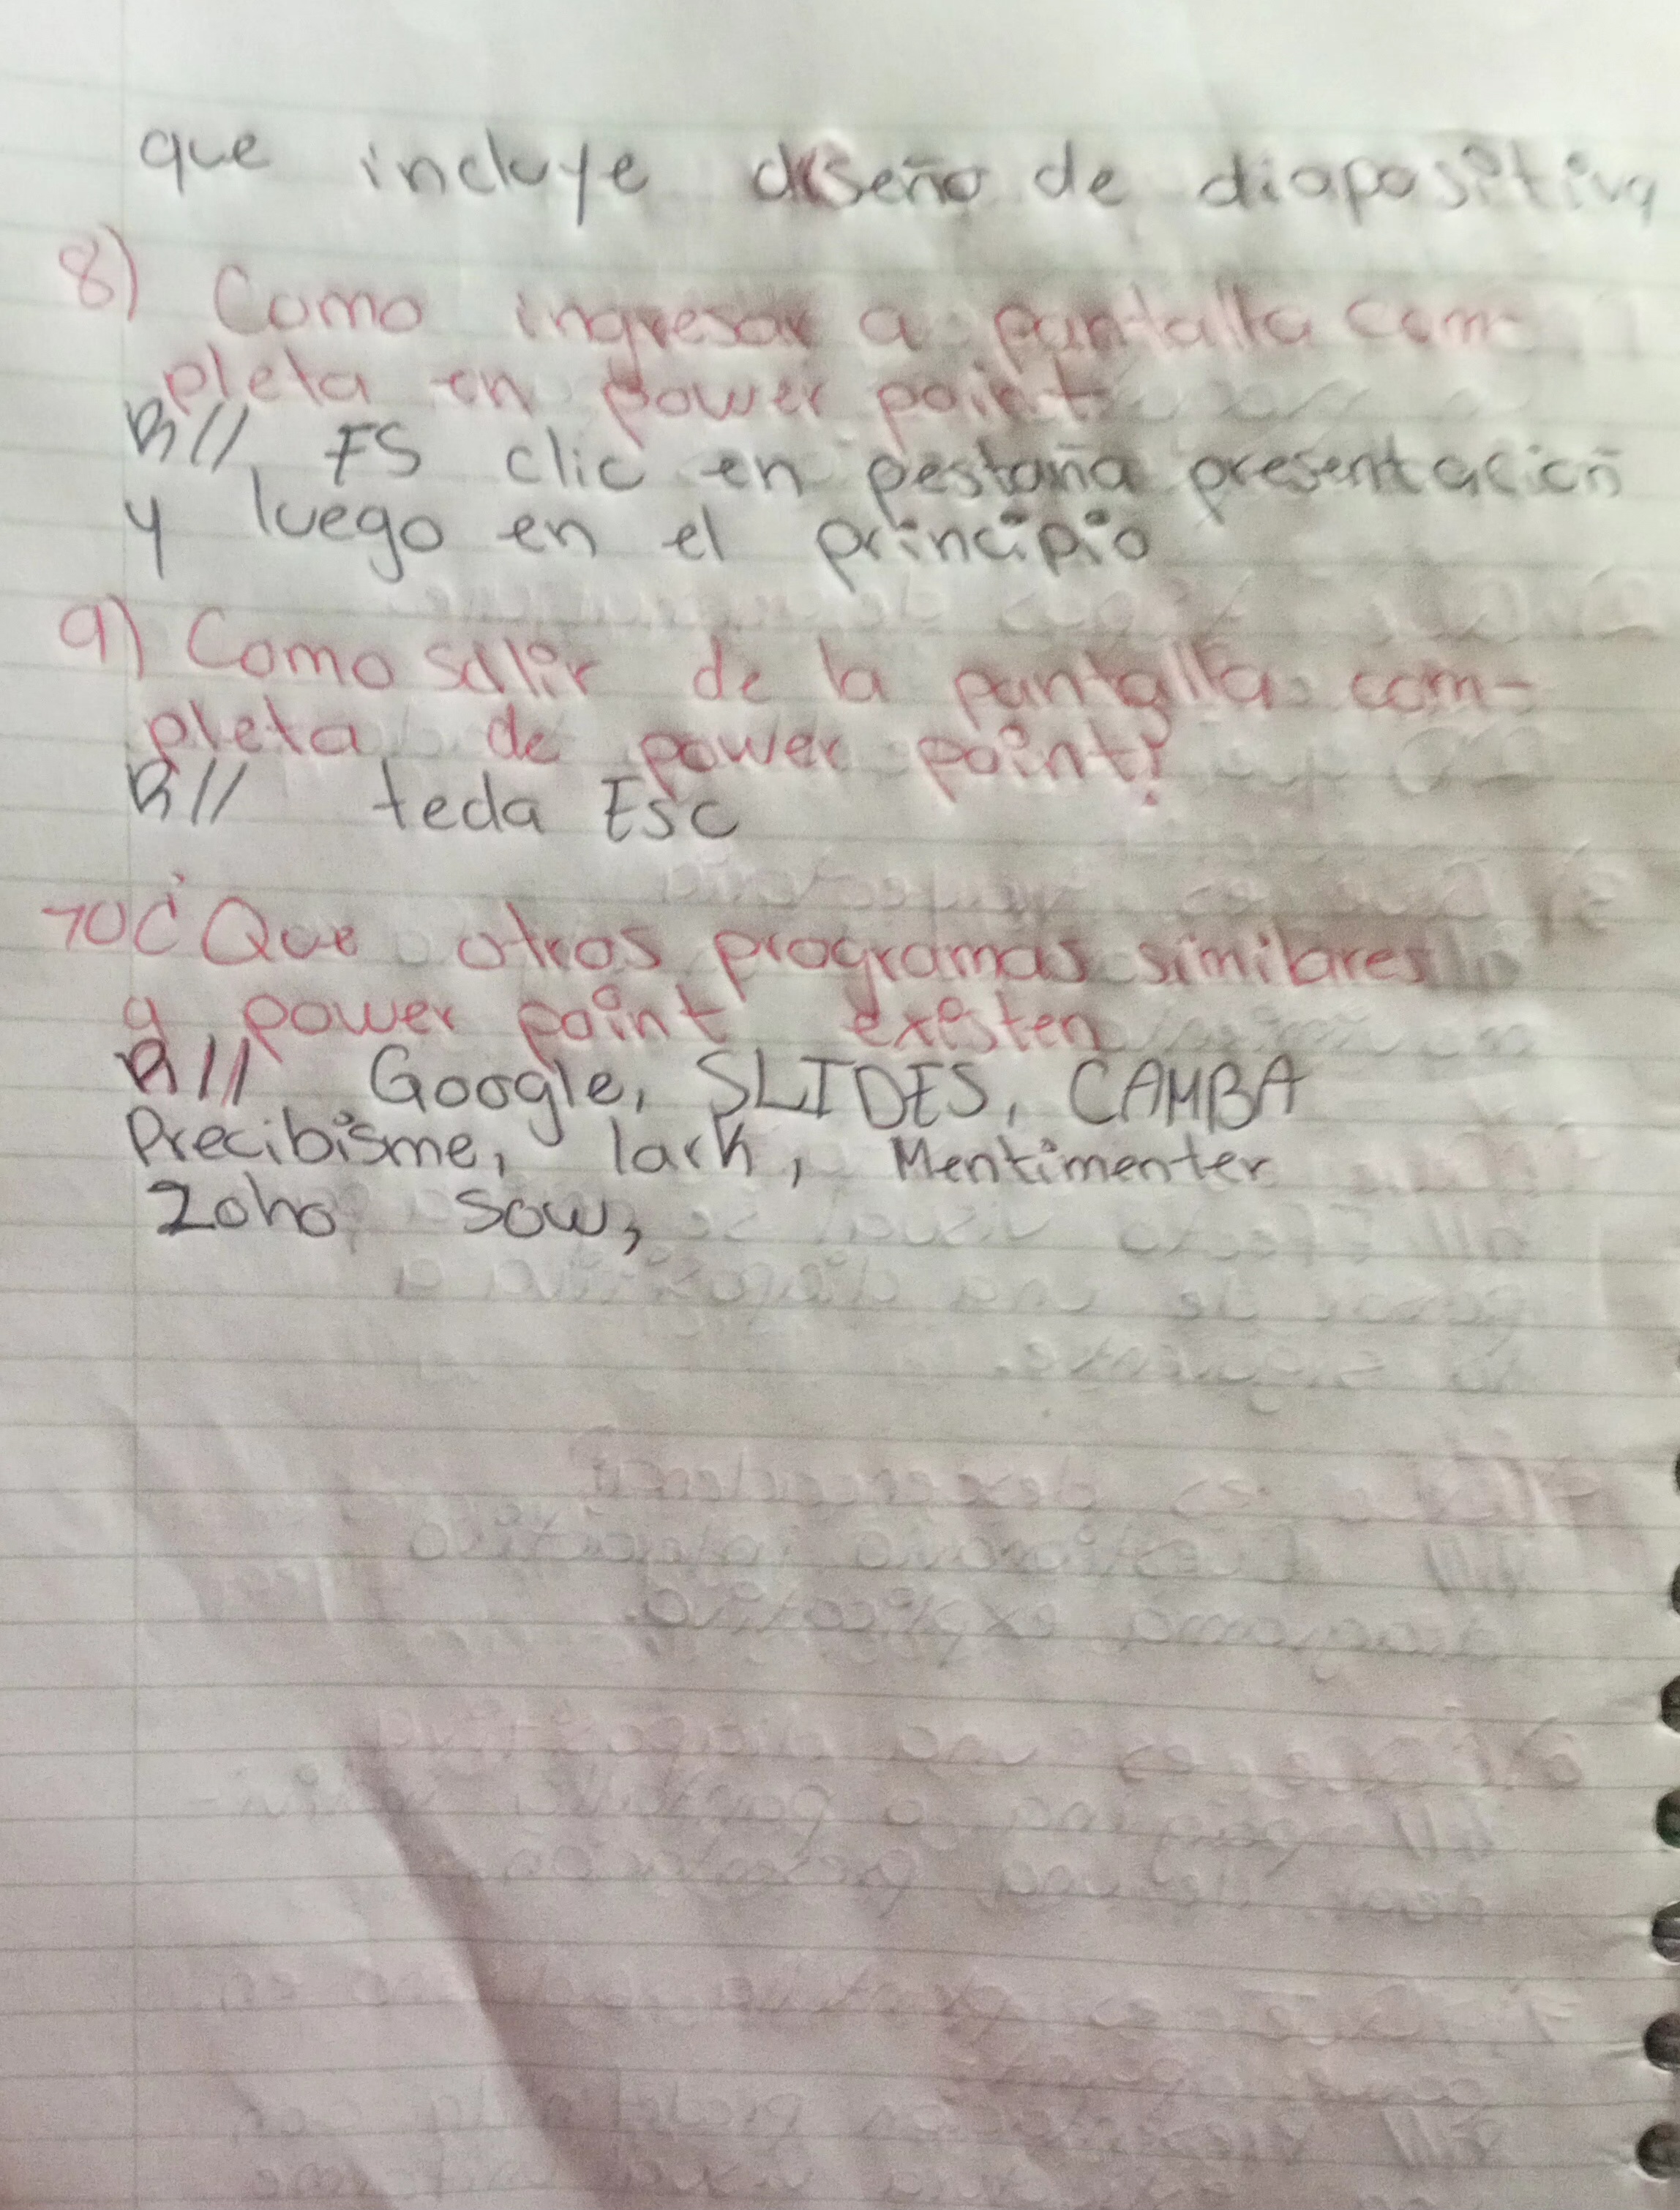 que incluye diseño de diapositiva
8) Como ingresar a pantalla com-
pleta en power point
R// F5 clic en pestaña presentación
y luego en el principio
9) Como salir de la pantalla com-
pleta de power point?
R// tecla Esc
10¿ Que otros programas similares
a power point existen
R// Google, SLIDES, CAMBA
Precibisme, lark, Mentimenter
Zoho sow,